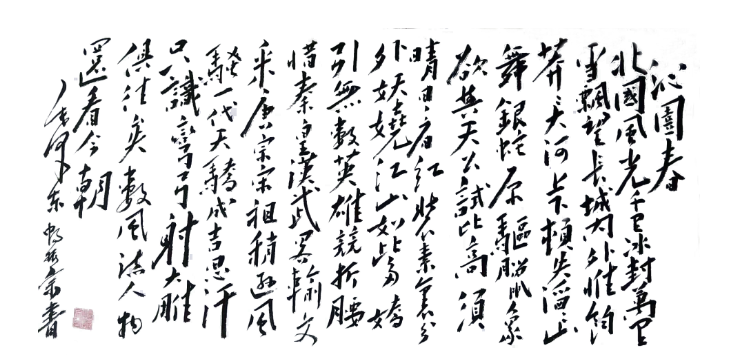 沁園春
北國風光千里冰封萬里
雪飄望長城内外惟餘
莽莽大河上下頓失滔滔山
舞銀蛇原驅臘象
欲與天公試比高須
晴日看紅妝素裹分
外妖嬈江山如此多嬌
引無數英雄競折腰
惜秦皇漢武略輸文
采唐宗宋祖稍遜風
騷一代天驕成吉思汗
只識彎弓射大雕
俱往矣數風流人物
還看今朝
書